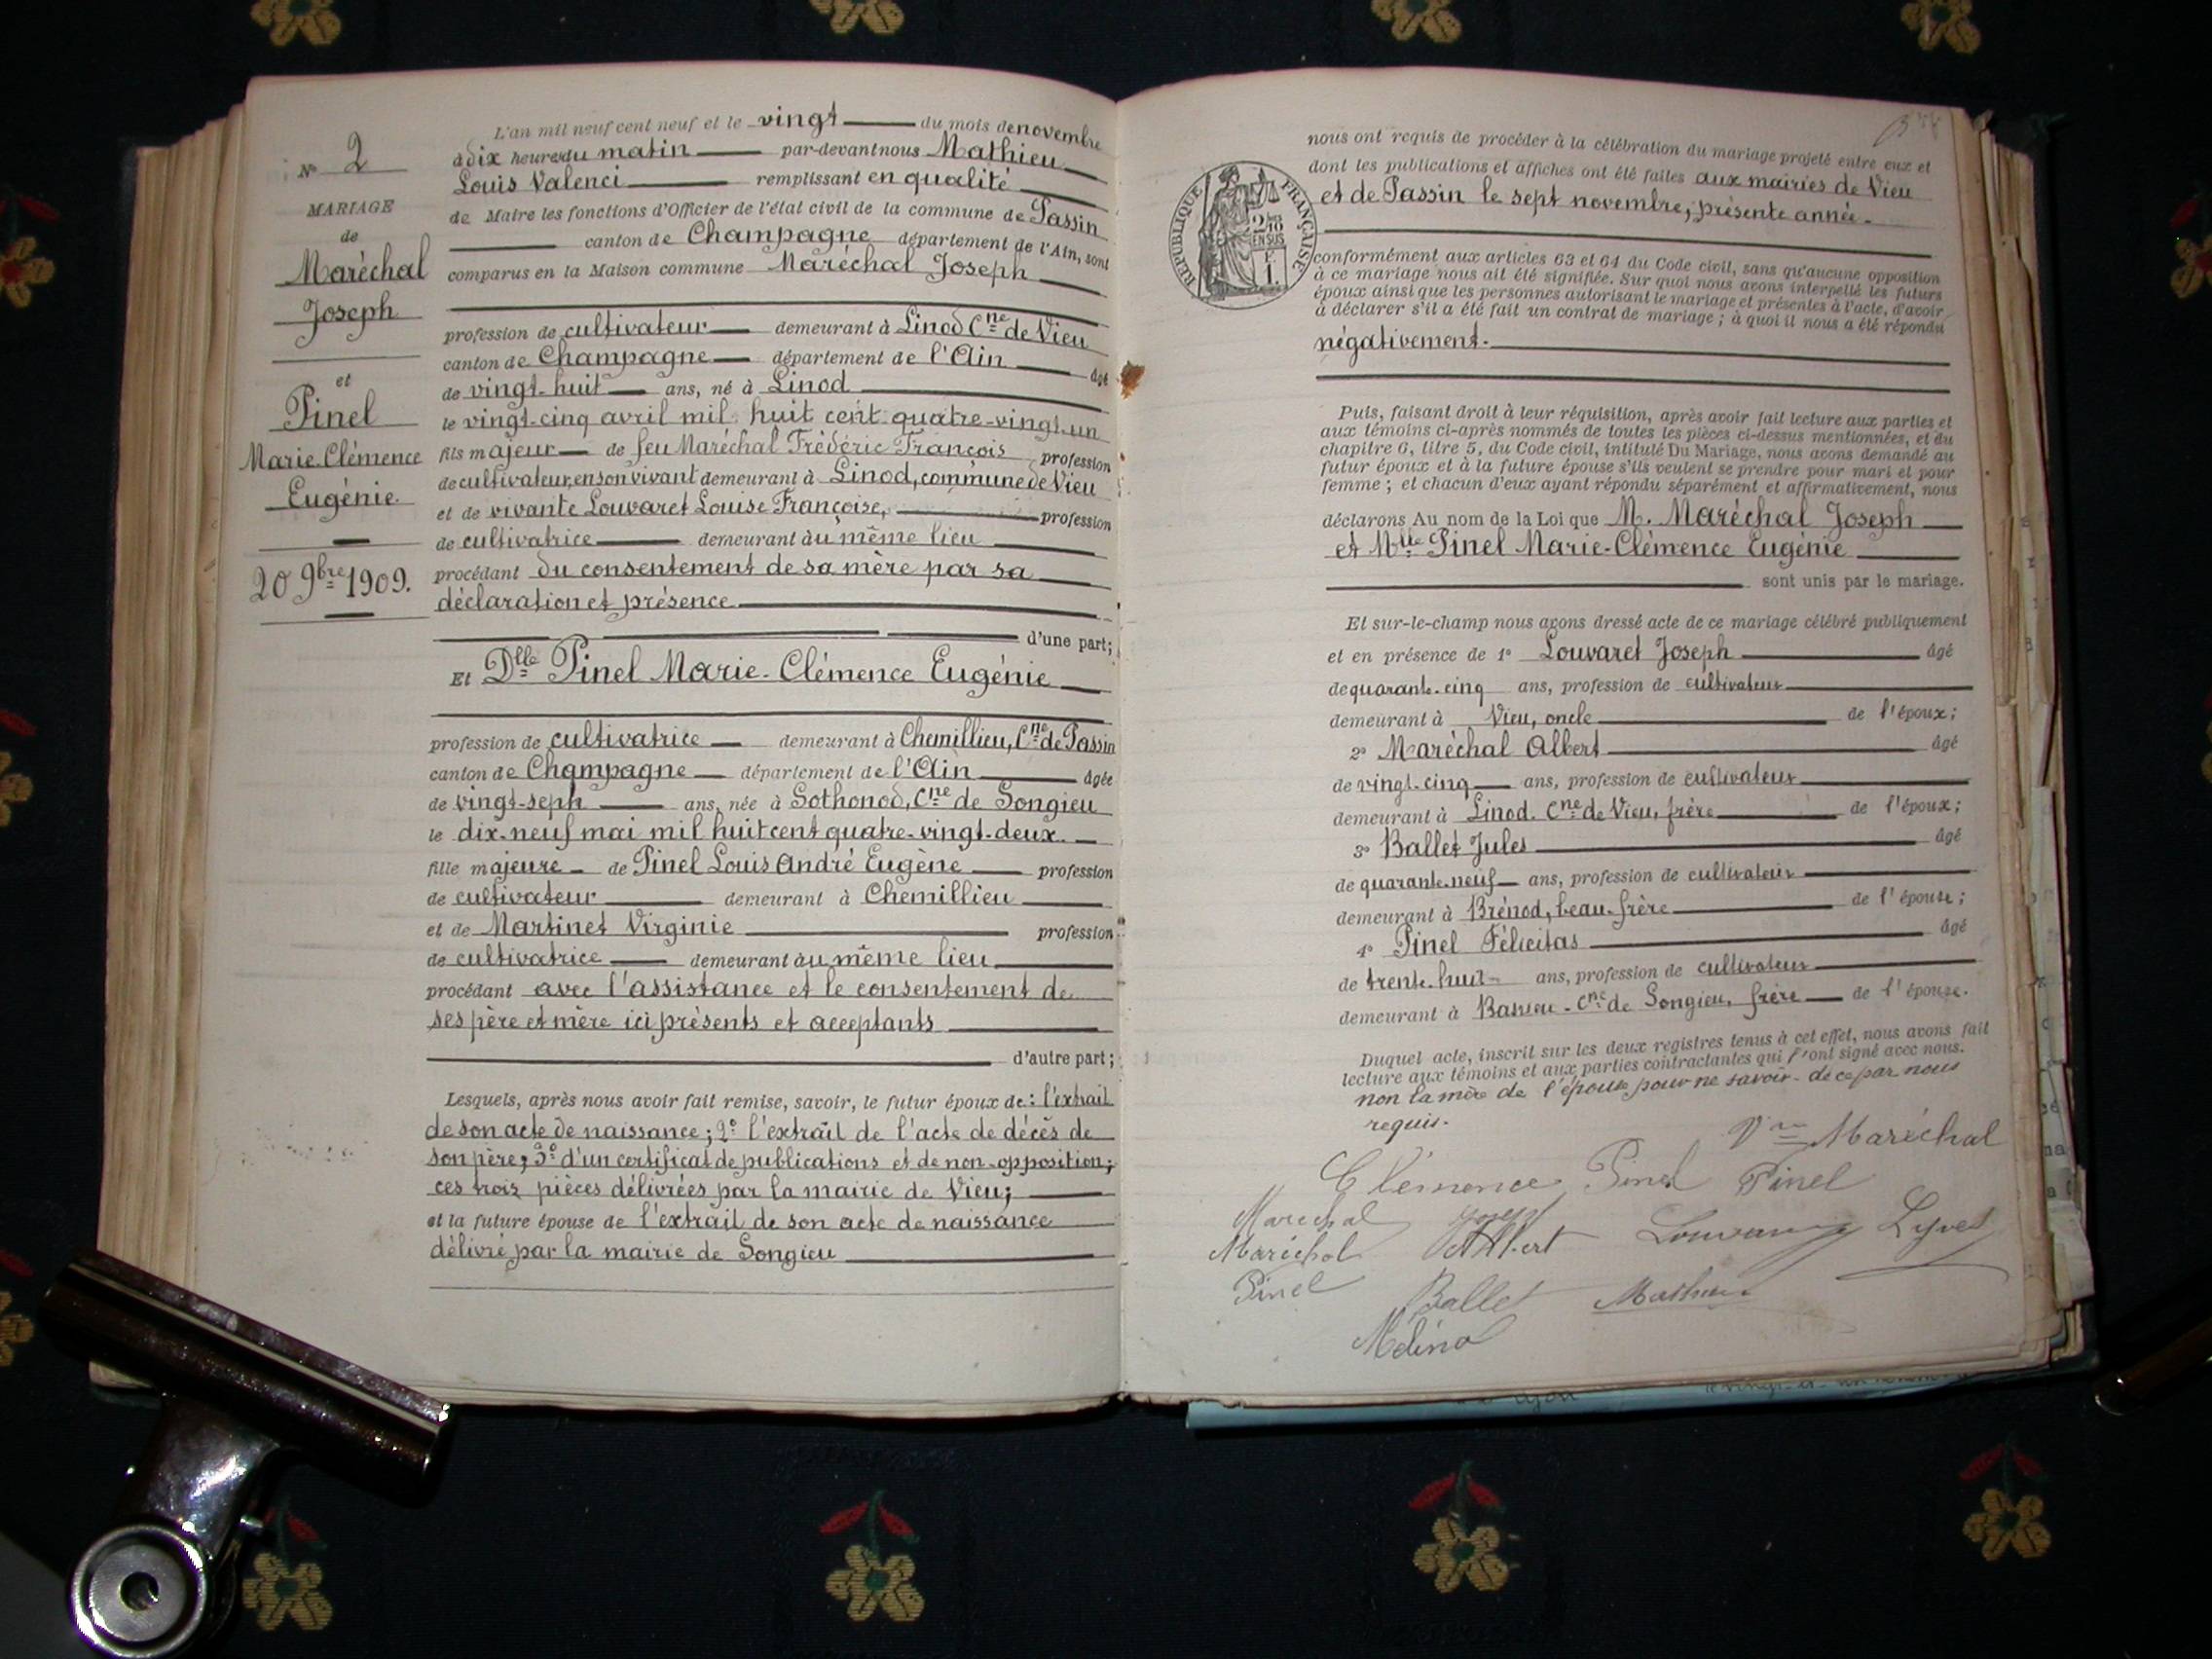 N° 2
MARIAGE
de
Maréchal
Joseph
et
Pinel
Marie-Clémence
Eugénie
20 9bre 1909.
L'an mil neuf cent neuf et le vingt du mois de novembre
à dix heures du matin par-devant nous Mathieu
Louis Valenci remplissant en qualité
de Maire les fonctions d'Officier de l'état civil de la commune de Passin
canton de Champagne département de l'Ain, sont
comparus en la Maison commune Maréchal Joseph
profession de cultivateur demeurant à Linod Cne de Vieu
canton de Champagne département de l'Ain âgé
de vingt-huit ans, né à Linod
le vingt-cinq avril mil huit cent quatre-vingt-un
fils majeur de feu Maréchal Frédéric François profession
de cultivateur, en son vivant demeurant à Linod, commune de Vieu
et de vivante Louvaret Louise Françoise, profession
de cultivatrice demeurant au même lieu
procédant du consentement de sa mère par sa
déclaration et présence
d'une part;
Et Dlle Pinel Marie-Clémence Eugénie
profession de cultivatrice demeurant à Chemillieu, Cne de Passin
canton de Champagne département de l'Ain âgée
de vingt-seph ans, née à Sothonod, Cne de Songieu
le dix-neuf mai mil huit cent quatre-vingt-deux.
fille majeure de Pinel Louis André Eugène profession
de cultivateur demeurant à Chemillieu
et de Martinet Virginie profession
de cultivatrice demeurant au même lieu
procédant avec l'assistance et le consentement de
ses père et mère ici présents et acceptants
d'autre part;
Lesquels, après nous avoir fait remise, savoir, le futur époux de: l'extrait
de son acte de naissance; 2° l'extrait de l'acte de décès de
son père; 3° d'un certificat de publications et de non-opposition;
ces trois pièces délivrées par la mairie de Vieu;
et la future épouse de l'extrait de son acte de naissance
délivré par la mairie de Songieu
RÉPUBLIQUE FRANÇAISE
2/10
EN SUS
nous ont requis de procéder à la célébration du mariage projeté entre eux et
dont les publications et affiches ont été faites aux mairies de Vieu
et de Passin le sept novembre, présente année.
conformément aux articles 63 et 64 du Code civil, sans qu'aucune opposition
à ce mariage nous ait été signifiée. Sur quoi nous avons interpellé les futurs
époux ainsi que les personnes autorisant le mariage et présentes à l'acte, d'avoir
à déclarer s'il a été fait un contrat de mariage; à quoi il nous a été répondu
négativement.
Puis, faisant droit à leur réquisition, après avoir fait lecture aux parties et
aux témoins ci-après nommés de toutes les pièces ci-dessus mentionnées, et du
chapitre 6, titre 5, du Code civil, intitulé Du Mariage, nous avons demandé au
futur époux et à la future épouse s'ils veulent se prendre pour mari et pour
femme; et chacun d'eux ayant répondu séparément et affirmativement, nous
déclarons Au nom de la Loi que M. Maréchal Joseph
et Mlle Pinel Marie-Clémence Eugénie
sont unis par le mariage.
Et sur-le-champ nous avons dressé acte de ce mariage célébré publiquement
et en présence de 1° Louvaret Joseph âgé
de quarante-cinq ans, profession de cultivateur
demeurant à Vieu, oncle de l'époux;
2° Maréchal Albert âgé
de vingt-cinq ans, profession de cultivateur
demeurant à Linod. Cne de Vieu, frère de l'époux;
3° Ballet Jules âgé
de quarante-neuf ans, profession de cultivateur
demeurant à Brénod, beau-frère de l'épouse;
4° Pinel Félicitas âgé
de trente-huit ans, profession de cultivateur
demeurant à Cne de Songieu, frère de l'épouse.
Duquel acte, inscrit sur les deux registres tenus à cet effet, nous avons fait
lecture aux témoins et aux parties contractantes qui l'ont signé avec nous.
non la mère de l'épouse pour ne savoir. de ce par nous
requis.
Vve Maréchal
Clémence Pinel Pinel
Marechal Joseph
Maréchal Albert
Pinel Ballet Mathieu